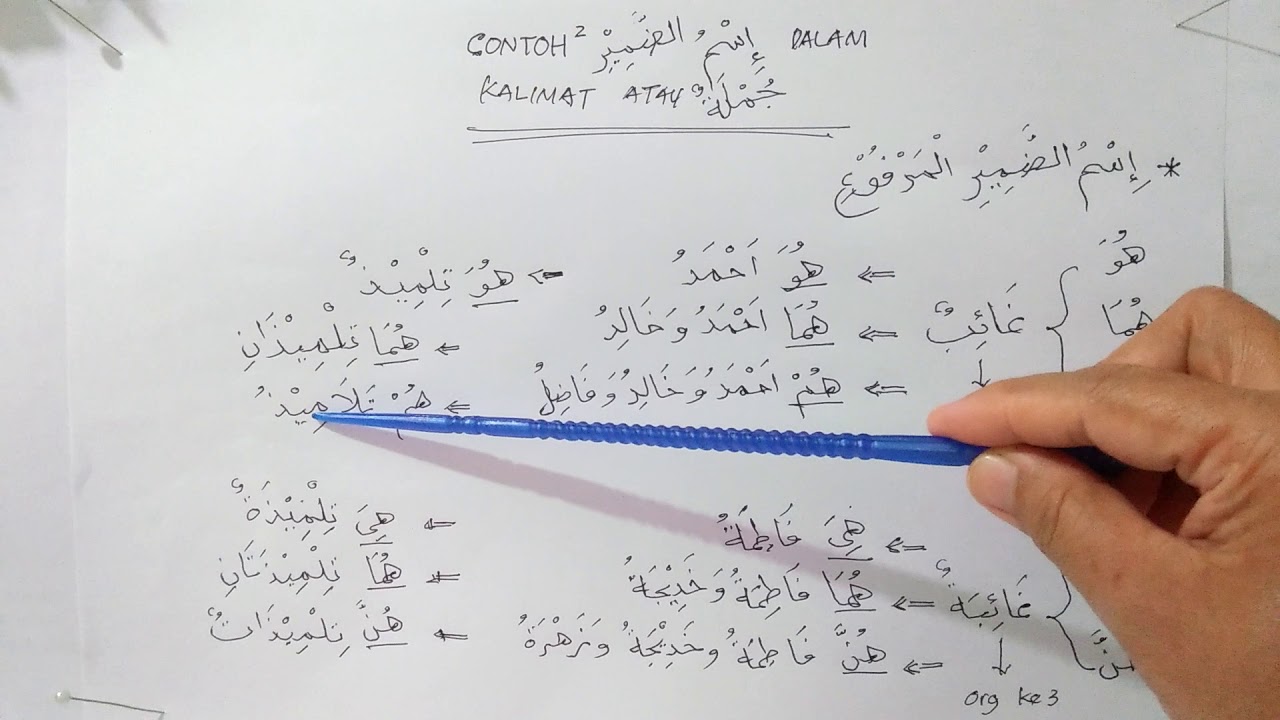 CONTOH² إِسْمُ الضَّمِيْرِ DALAM
KALIMAT ATAU جُمْلَةٌ
* إِسْمُ الضَّمِيْرِ الْمَرْفُوْعِ
هُوَ ⇐ هُوَ اَحْمَدُ ⇐ هُوَ تِلْمِيْذٌ
هُمَا غَائِبٌ ⇐ هُمَا اَحْمَدُ وَخَالِدُ ⇐ هُمَا تِلْمِيْذَانِ
↓ ⇐ هُمْ اَحْمَدُ وَخَالِدُ وَفَاضِلُ ⇐ هُمْ تَلَامِيْذُ
⇐ هِيَ فَاطِمَةُ ⇐ هِيَ تِلْمِيْذَةٌ
غَائِبَةٌ ⇐ هُمَا فَاطِمَةُ وَخَدِيْجَةُ ⇐ هُمَا تِلْمِيْذَتَانِ
↓ ⇐ هُنَّ فَاطِمَةُ وَخَدِيْجَةُ وَزَهْرَةُ ⇐ هُنَّ تِلْمِيْذَاتٌ
org ke 3